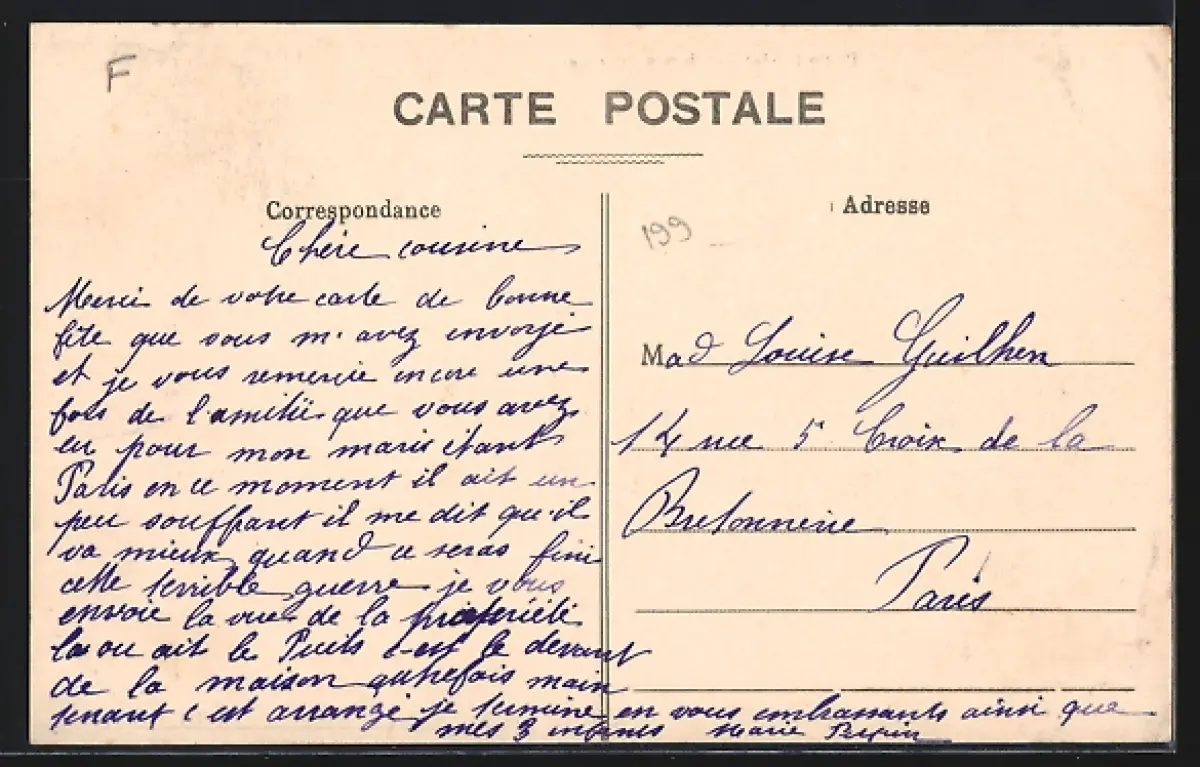 F
CARTE POSTALE
Correspondance
Chère cousine
Merci de votre carte de bonne
fête que vous m'avez envoyé
et je vous remercie encore une
fois de l'amitié que vous avez
eu pour mon maris étant
Paris en ce moment il ait un
peu souffrant il me dit qu'il
va mieux quand ce seras fini
cette terrible guerre je vous
envoie la vue de la propriété
la ou ait le Puits c'est le devant
de la maison autrefois main
tenant c'est arrangé je termine en vous embrassants ainsi que
mes 3 enfants Marie
Adresse
199
Mad Louise Guilhen
14 rue 5 Croix de la
Bretonnerie
Paris